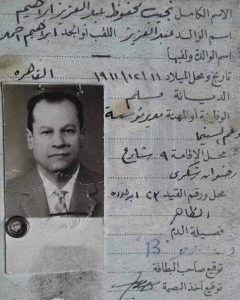 الاسم الكامل نجيب محفوظ عبد العزيز ابراهيم
اسم الوالد عبد العزيز اللقب أو الجد ابراهيم احمد
اسم الوالدة ولقبها
تاريخ ومحل الميلاد ١١/١٢/١٩١١ القاهرة
الديانة مسلم
الوظيفة أو المهنة مدير مؤسسة
دعم السينما
محل الإقامة ٩ شارع
رضوان شكري
محل ورقم القيد ٢٣
الظاهر
فصيلة الدم B
توقيع صاحب البطاقة
توقيع آخذ البصمة